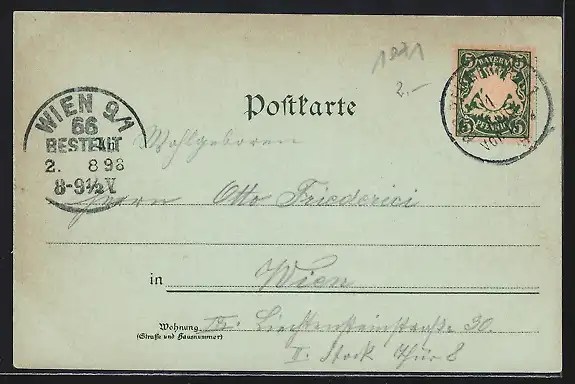 1871
2.-
BAYERN
5 5
PFENNIG
Postkarte
WIEN 9/1
66
BESTELLT
2. 8 98
8-9½V
Wohlgeboren
Herrn Otto Friederici
in Wien
Wohnung IX. Liechtensteinstraße 30.
(Straße und Hausnummer)
II. Stock Thür 8